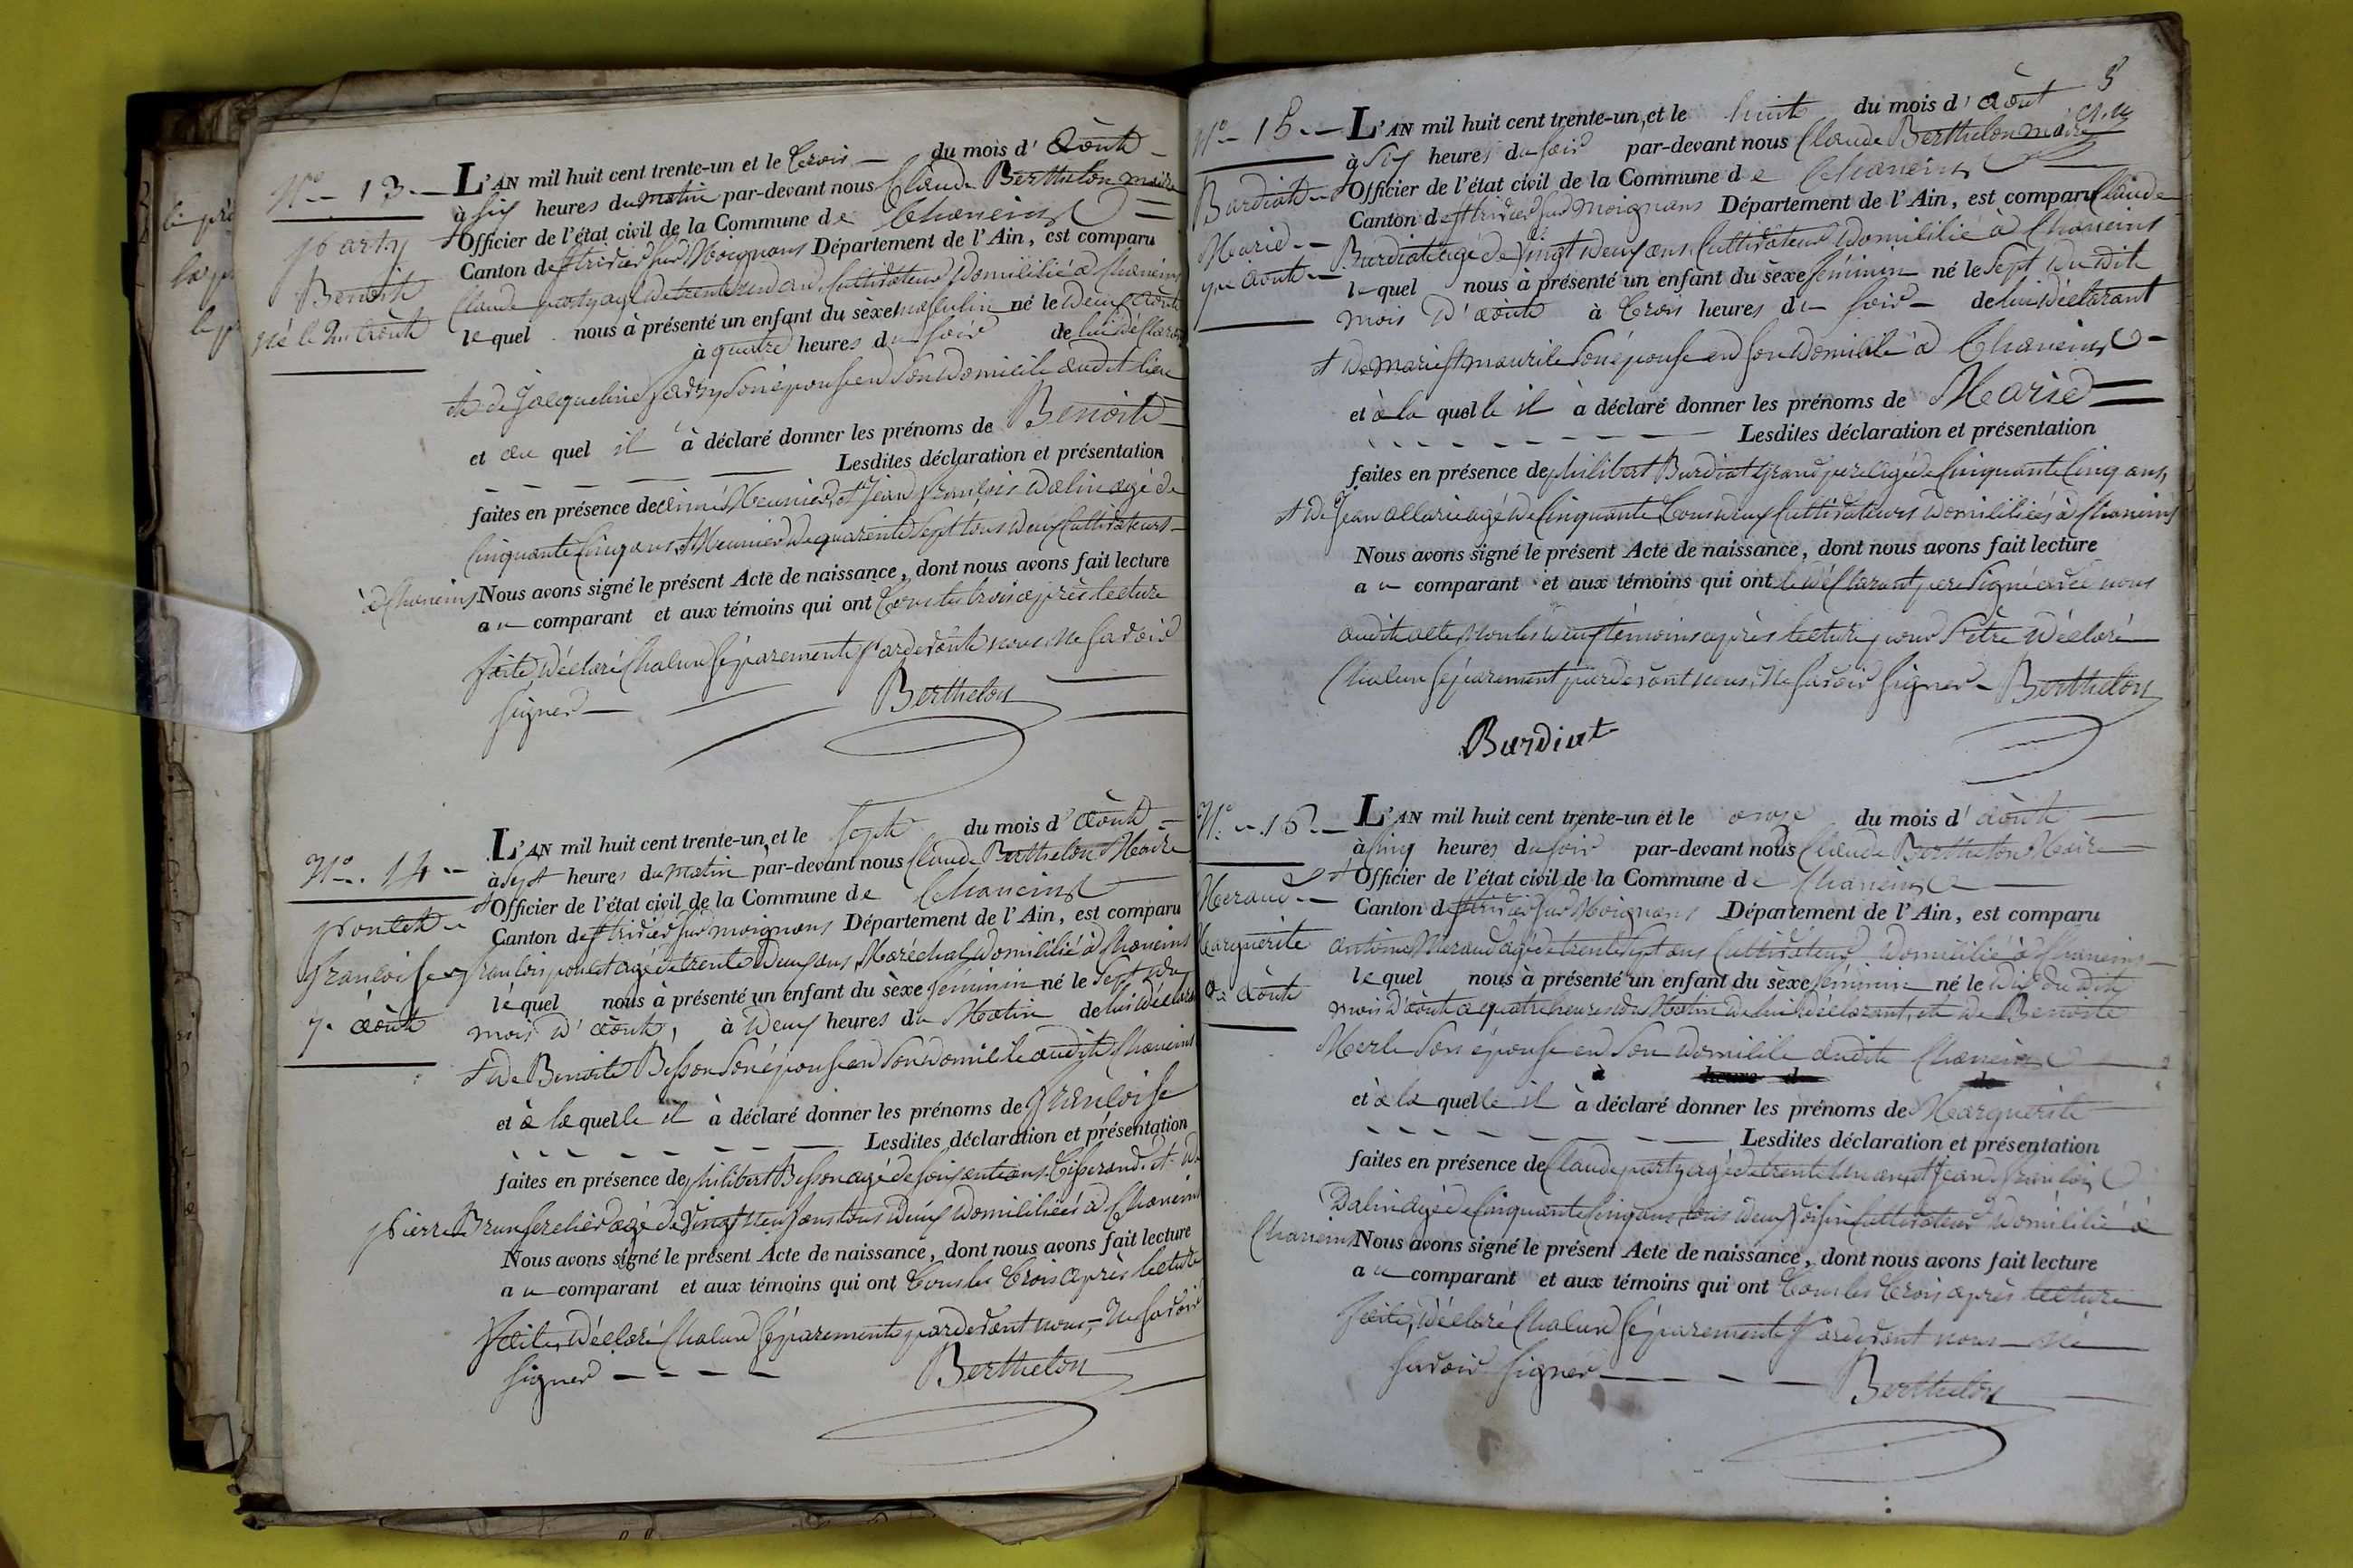 N.° 13.
Party
Benoit
né le 2 Août
L'AN mil huit cent trente-un et le trois du mois d'Août
à six heures du matin par-devant nous Claude Berthelon maire
et Officier de l'état civil de la Commune de Chaneins
Canton de St trivier sur Moignans Département de l'Ain, est comparu
Claude party agé de trente un ans Cultivateur Domicilié à Chaneins
lequel nous à présenté un enfant du sèxe masculin né le Deux Août
à quatre heures du soir de lui Déclarant
et de Jacqueline son épouse en son Domicile audit lieu
et au quel il à déclaré donner les prénoms de Benoit
Lesdites déclaration et présentation
faites en présence de aimé Meunier et Jean françois Dalin agé de
Cinquante Cinq ans, et Meunier de quarente Sept tous Deux Cultivateurs
à Chaneins Nous avons signé le présent Acte de naissance, dont nous avons fait lecture
au comparant et aux témoins qui ont tous les trois après lecture
faite, Déclaré Chacun séparement pardevant nous ne savoir
signer
Berthelon
N.° 14
Poulet
françoise
7. Août
L'AN mil huit cent trente-un et le sept du mois d'Août
à sept heures du matin par-devant nous Claude Berthelon Maire
et Officier de l'état civil de la Commune de Chaneins
Canton de St trivier sur moignans Département de l'Ain, est comparu
françois poulet agé de trente Deux ans, Maréchal Domicilié à Chaneins
lequel nous à présenté un enfant du sèxe féminin né le Sept du
mois d'Août, à Deux heures du Matin de lui Déclarant
et de Benoite Besson Son épouse en Son Domicile audit Chaneins
et à la quelle il à déclaré donner les prénoms de françoise
Lesdites déclaration et présentation
faites en présence de philibert Besson agé de soixante ans Tisserand. et de
pierre Brun agé de Vingt neuf ans tous Deux Domiciliés à Chaneins
Nous avons signé le présent Acte de naissance, dont nous avons fait lecture
au comparant et aux témoins qui ont tous les trois après lecture
faite, Déclaré Chacun séparement pardevant nous ne savoir
signer
Berthelon
5
N.° 15.
Burdiat
Marie
7 Août
L'AN mil huit cent trente-un, et le huit du mois d'Août
à Six heures du soir par-devant nous Claude Berthelon maire
et Officier de l'état civil de la Commune de Chaneins
Canton de St trivier sur moignans Département de l'Ain, est comparu Claude
Burdiat agé de Vingt Deux ans, Cultivateur Domicilié à Chaneins
lequel nous à présenté un enfant du sèxe féminin né le Sept Du dit
mois D'août à trois heures du soir de lui Déclarant
et de marie son épouse en son Domicile à Chaneins
et à la quelle il à déclaré donner les prénoms de Marie
Lesdites déclaration et présentation
faites en présence de philibert Burdiat Grand pere agé de Cinquante Cinq ans,
et de Jean allarie agé de Cinquante tous deux Cultivateurs Domiciliés à Chaneins
Nous avons signé le présent Acte de naissance, dont nous avons fait lecture
au comparant et aux témoins qui ont le Déclarant pere Signé avec nous
audit acte Non les deux témoins après lecture pour l'être Déclaré
Chacun séparement pardevant nous, Ne savoir signer Berthelon
Burdiat
N.° 16.
Meraud
Marguerite
Août
L'AN mil huit cent trente-un et le onze du mois d'Août
à Cinq heures du soir par-devant nous Claude Berthelon Maire
et Officier de l'état civil de la Commune de Chaneins
Canton de St trivier sur Moignans Département de l'Ain, est comparu
antoine Meraud agé de trente Sept ans Cultivateur Domicilié à Chaneins
lequel nous à présenté un enfant du sèxe féminin né le Dix du dit
mois D'août à quatre heures du Matin de lui Déclarant, et de Benoite
Merle Son épouse en Son Domicile audit Chaneins
à heure du de
et à la quelle il à déclaré donner les prénoms de Marguerite
Lesdites déclaration et présentation
faites en présence de Claude party agé de trente un ans, et Jean françois
Dalin agé de Cinquante Cinq ans, tous Deux Cultivateurs Domicilié à
Chaneins Nous avons signé le présent Acte de naissance, dont nous avons fait lecture
au comparant et aux témoins qui ont tous les trois après lecture
faite, Déclaré Chacun séparement pardevant nous ne
savoir signer
Berthelon